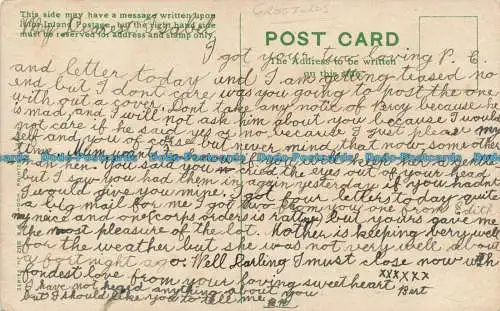 This side may have a message written upon
it for Inland Postage, but the right hand side
must be reserved for address and stamp only.
POST CARD
The Address to be written
on this side.
My
I got your loving P. C.
and letter today and I am getting teased no
end but I dont care was you going to post the one
with out a cover. Dont take any note of Percy because he
is mad, and I will not ask him about you because I would
not care if he said yes or no because I just please my
self and you of course but never mind that now some other
time
then. have you cried the eyes out of your head
but I say you had them in again yesterday if you hadnt
I would give you mine. I got two letters today quite
a big mail for me one from you one from Edith
my neice and one corps orders is rather but yours are me
the most pleasure of the lot. Mother is keeping very well
for the weather but she was not very well about
a fortnight ago. Well Darling I must close now with
fondest love from your loving sweetheart
xxxxxx
I have not heard anything about you
Bert
but I should like you to tell me